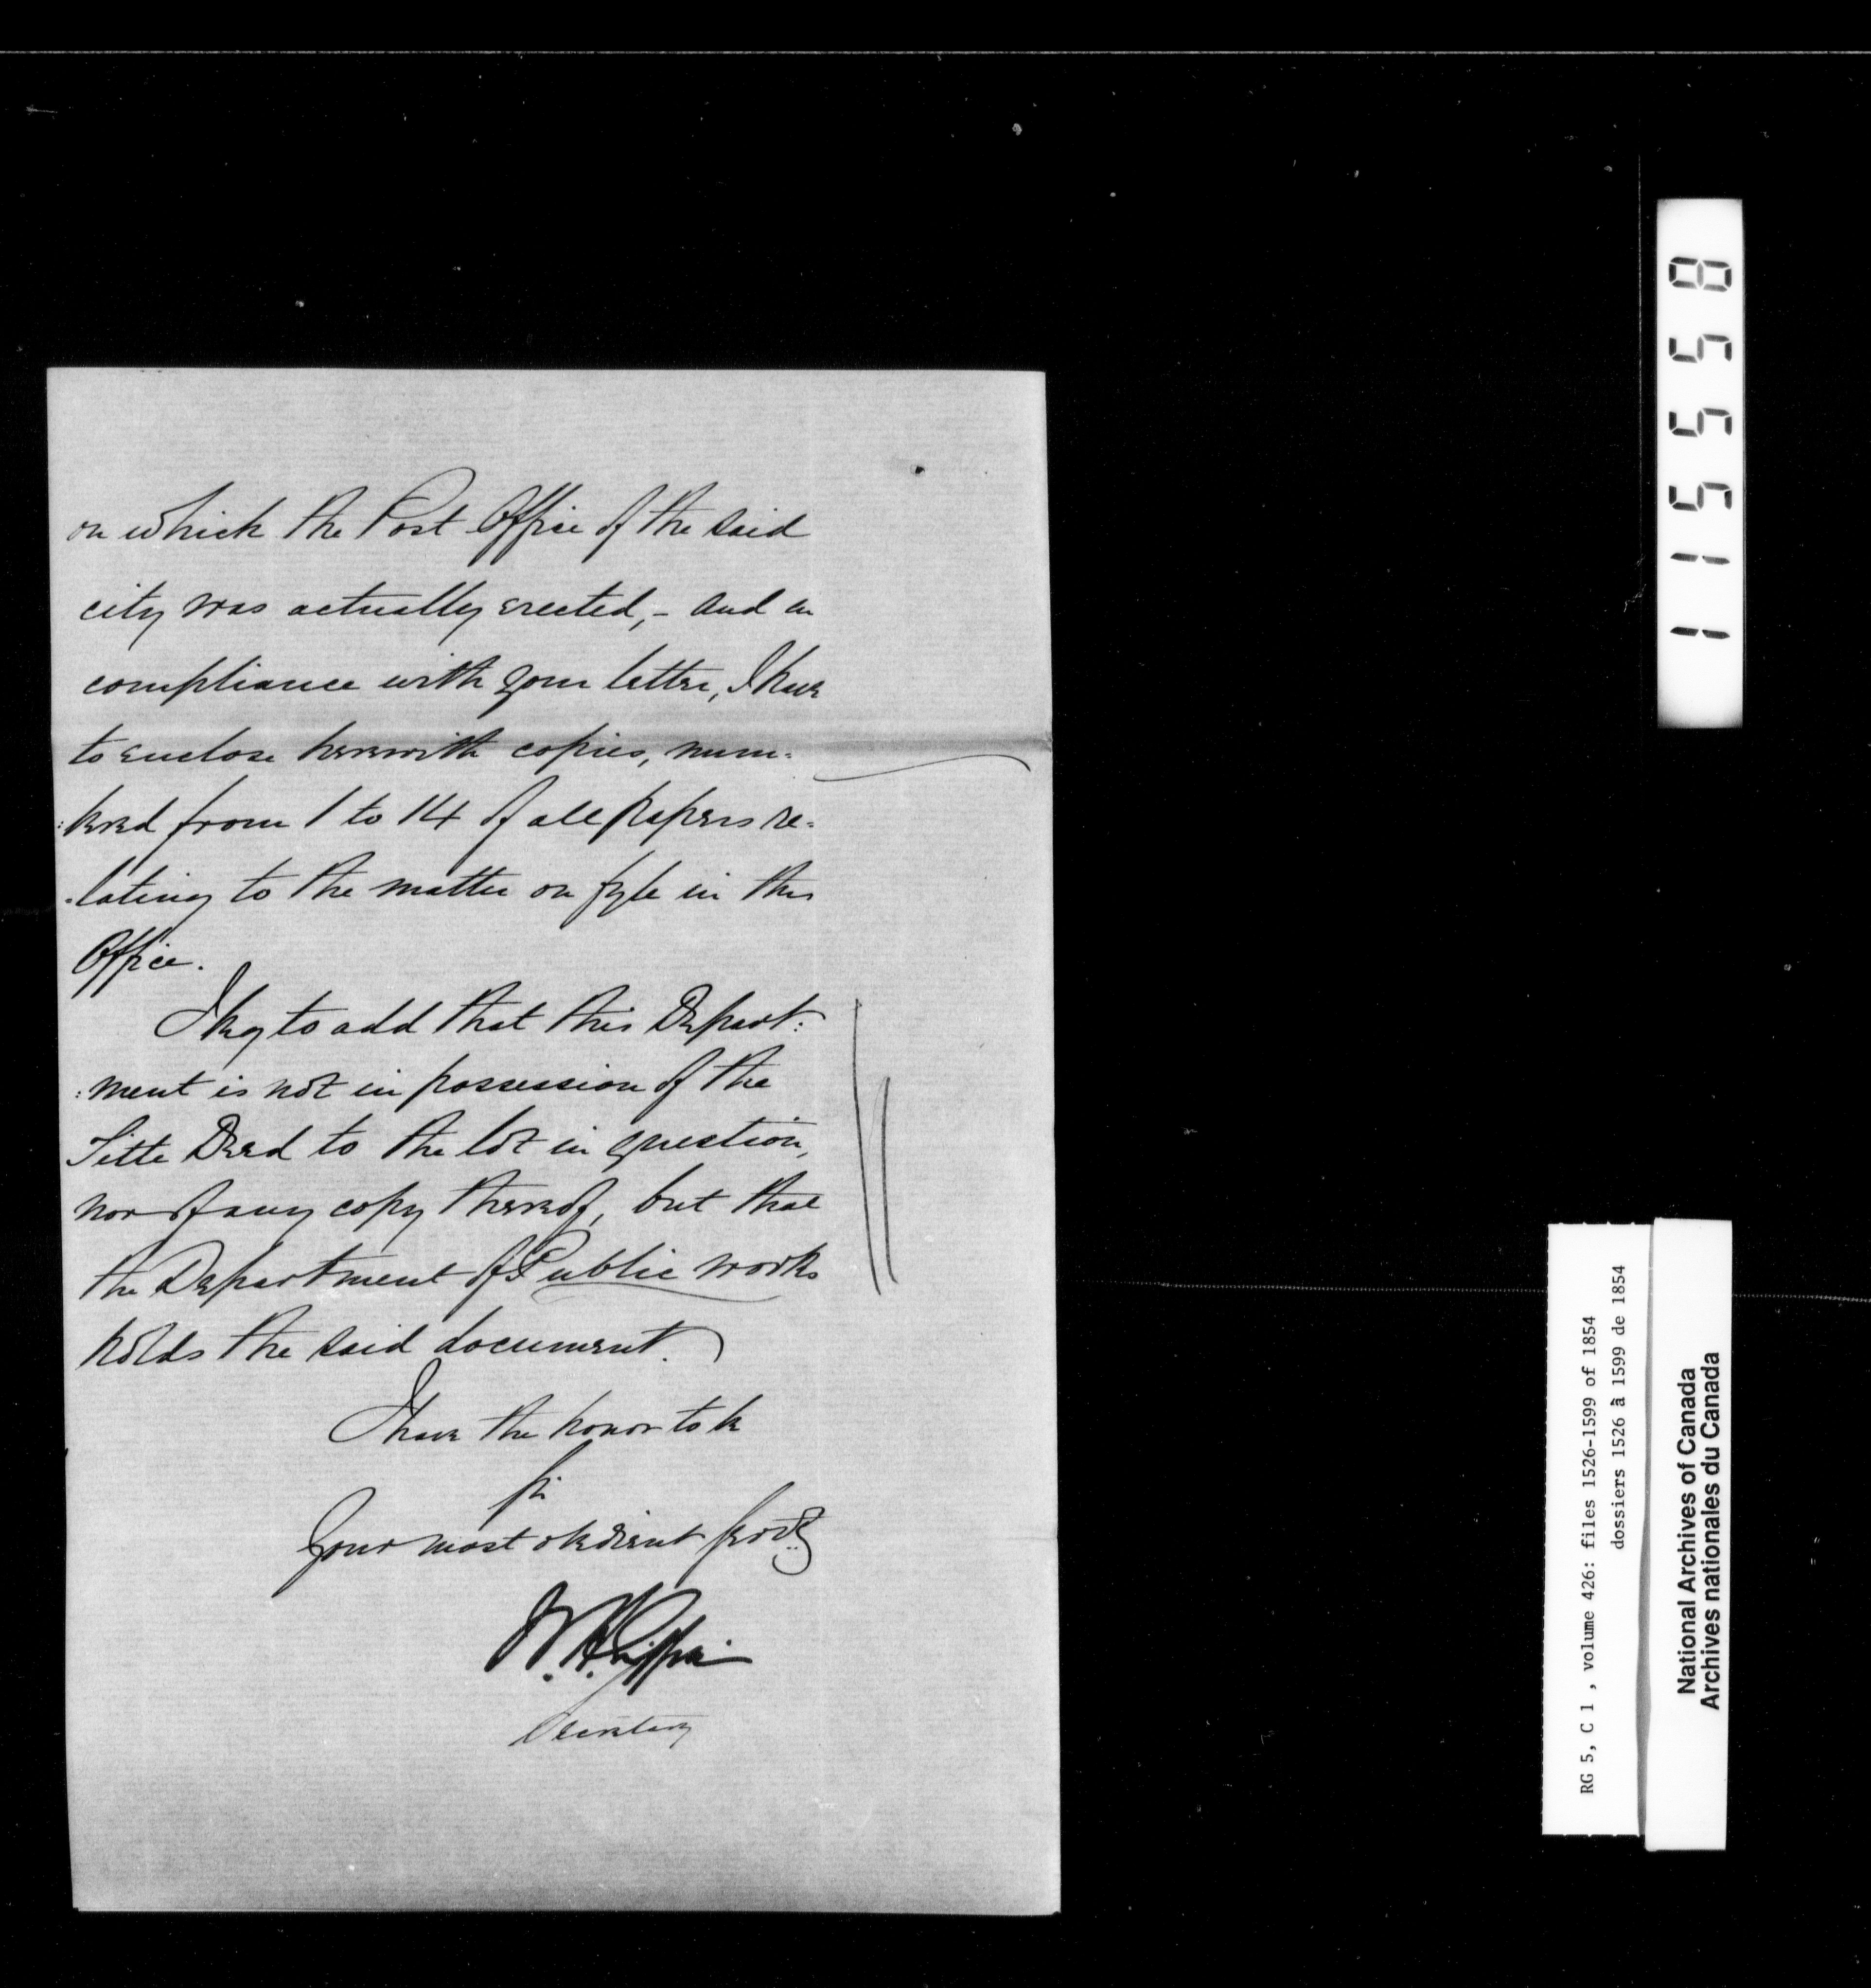 on which the Post Office of the said
city was actually erected, – and in
compliance with your letter, I have
to enclose herewith copies, num:
:bered from 1 to 14 of all papers re:
:lating to the matter on fyle in this
Office.
I beg to add that this Depart:
:ment is not in possession of the
Title Deed to the lot in question,
nor of any copy thereof, but that
the Department of Public works
holds the said document.
I have the honor to be
Sir
Your most obedient servt
W. H. Griffin
Secretary
115558
RG 5, C 1 , volume 426: files 1526-1599 of 1854
dossiers 1526 à 1599 de 1854
National Archives of Canada
Archives nationales du Canada